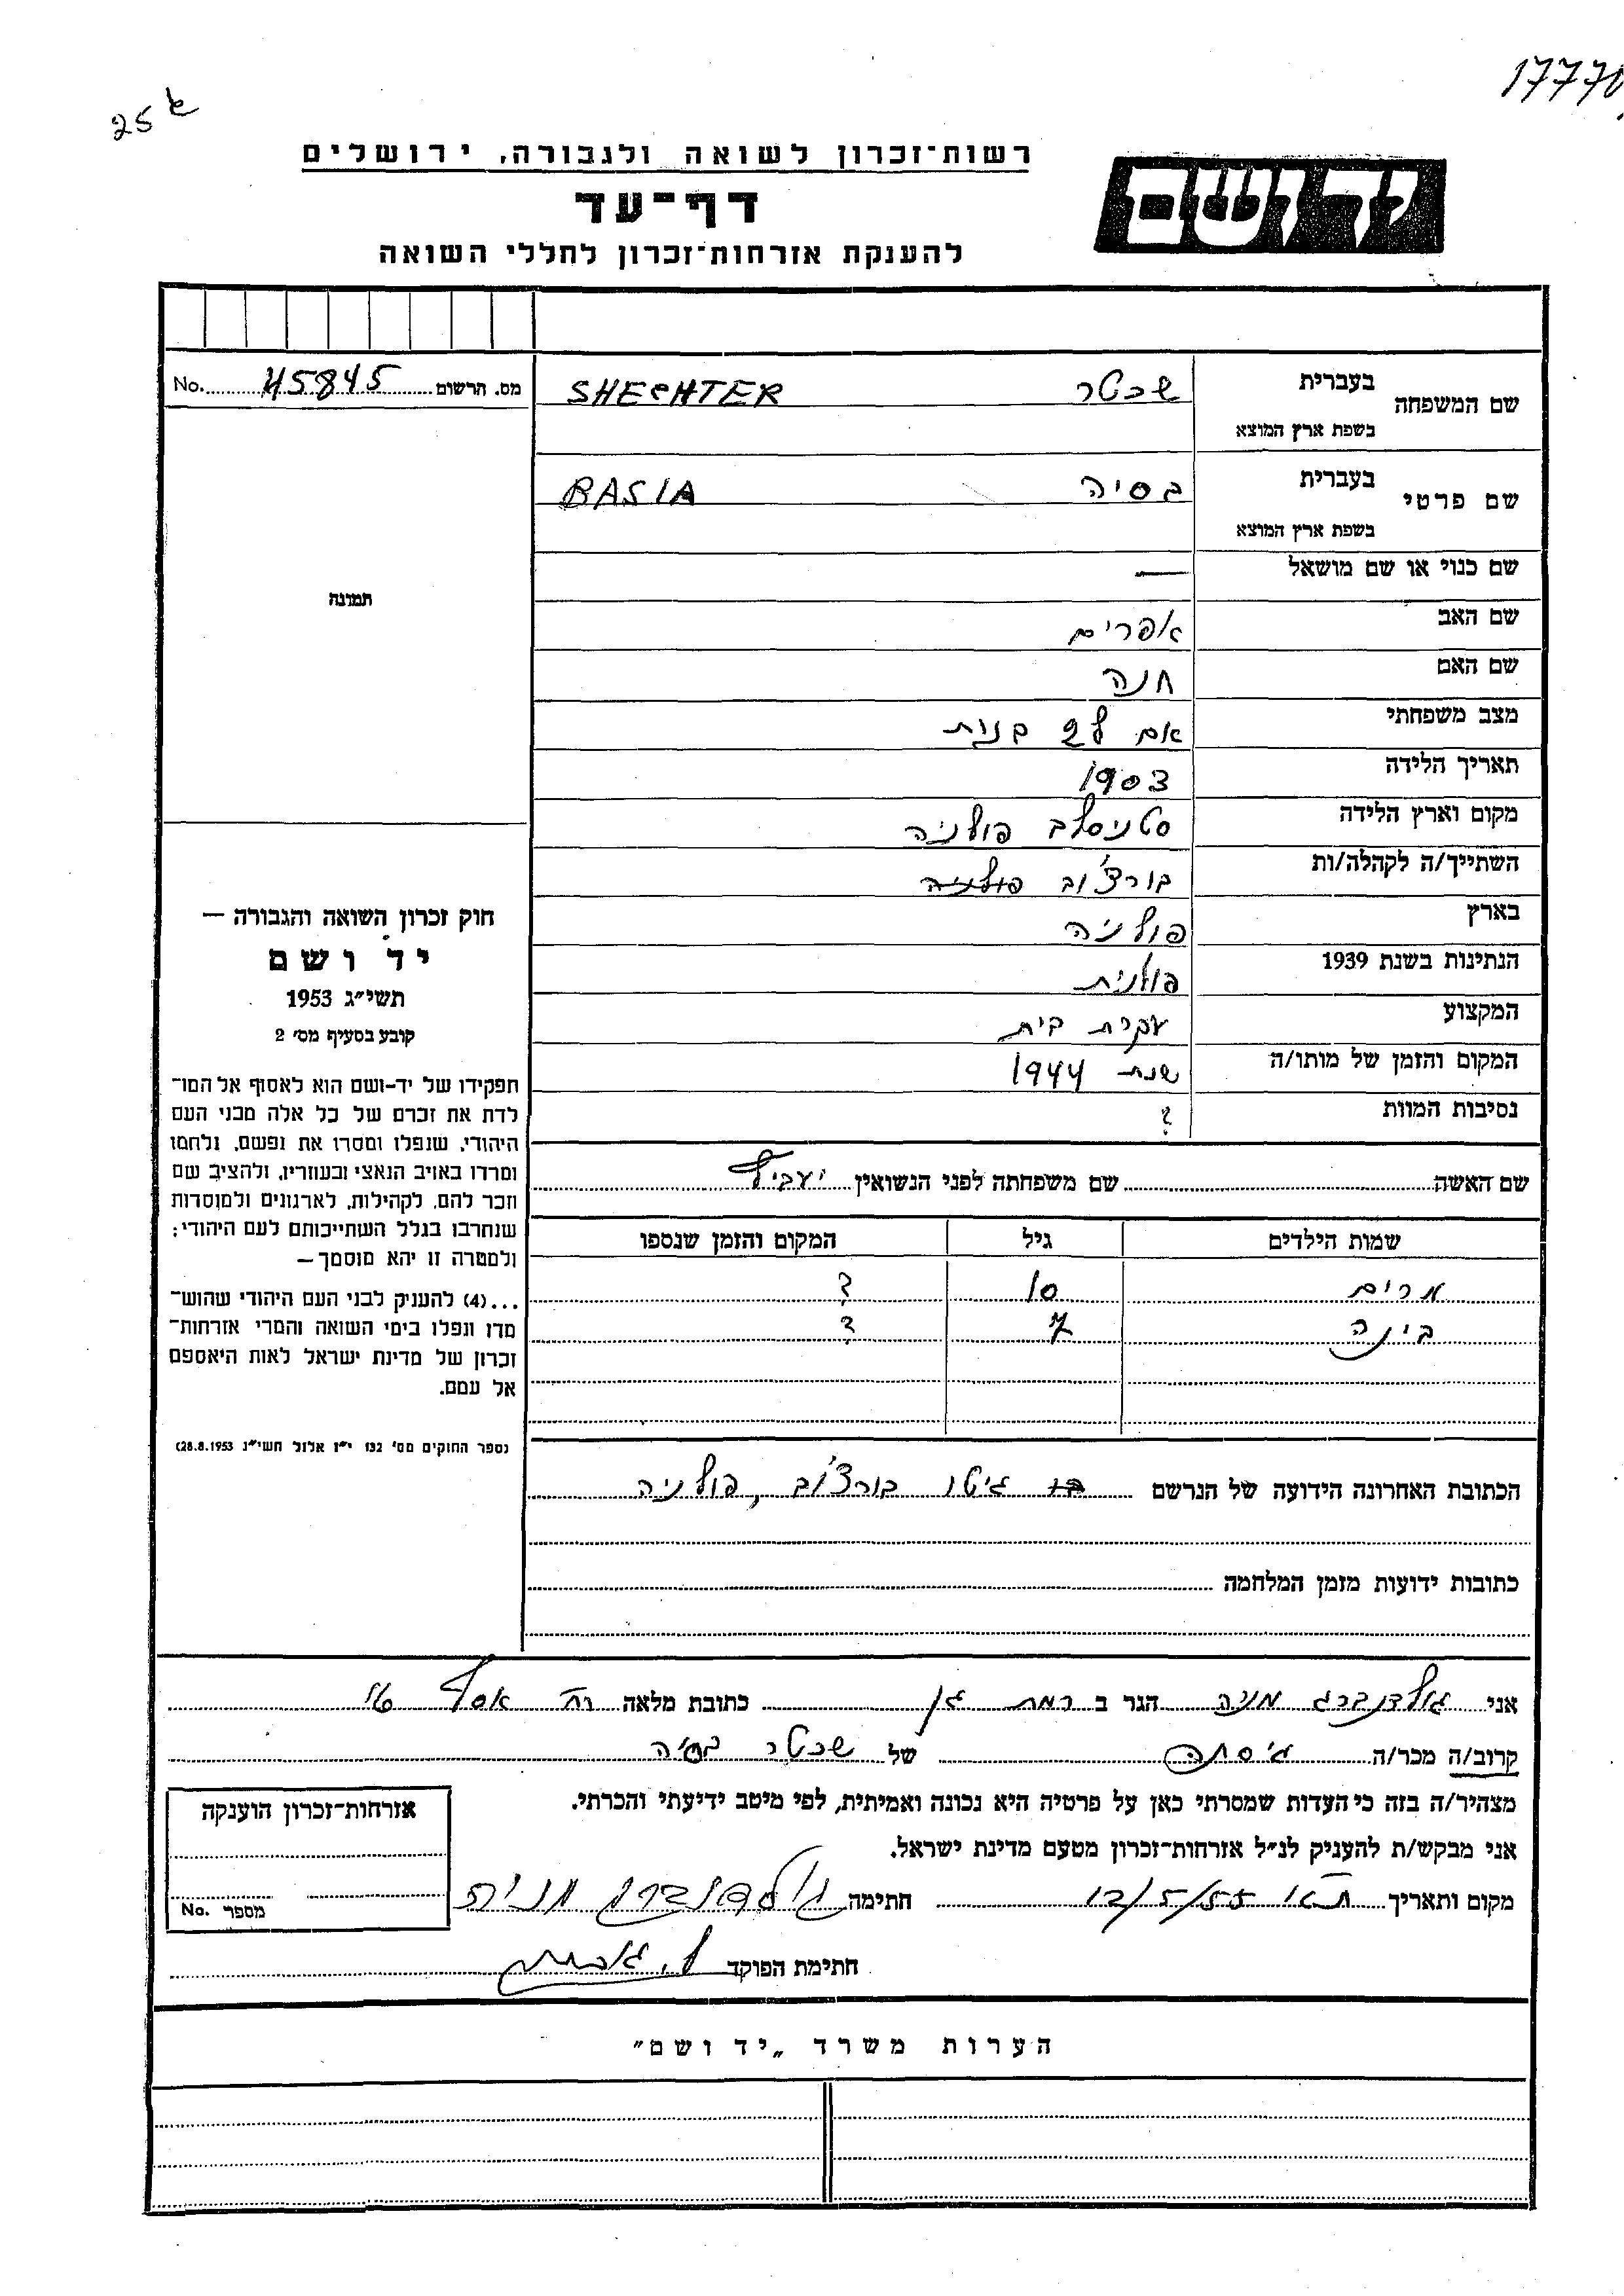 17770
25 א
רשות־זכרון לשואה ולגבורה, ירושלים
יד ושם
דף־עד
להענקת אזרחות־זכרון לחללי השואה
שם המשפחה בעברית שכטר SHECHTER
בשפת ארץ המוצא
מס. הרשום 45845 No.
שם פרטי בעברית בסיה BASIA
בשפת ארץ המוצא
שם כנוי או שם מושאל —
תמונה
שם האב אפרים
שם האם חנה
מצב משפחתי אם ל2 בנות
תאריך הלידה 1903
מקום וארץ הלידה סטניסלב פולניה
השתייך/ה לקהלה/ות בורצ'וב פולניה
בארץ פולניה
הנתינות בשנת 1939 פולנית
המקצוע עקרת בית
המקום והזמן של מותו/ה שנת 1944
נסיבות המוות ?
חוק זכרון השואה והגבורה —
יד ושם
תשי״ג 1953
קובע בסעיף מס׳ 2
תפקידו של יד-ושם הוא לאסוף אל המו־
לדת את זכרם של כל אלה מבני העם
היהודי, שנפלו ומסרו את נפשם, נלחמו
ומרדו באויב הנאצי ובעוזריו, ולהציב שם
וזכר להם, לקהילות, לארגונים ולמוסדות
שנחרבו בגלל השתייכותם לעם היהודי;
ולמטרה זו יהא מוסמך—
...(4) להעניק לבני העם היהודי שהוש־
מדו ונפלו בימי השואה והמרי אזרחות־
זכרון של מדינת ישראל לאות היאספם
אל עמם.
(ספר החוקים מס׳ 132 י״ז אלול תשי״ג 28.8.1953)
שם האשה שם משפחתה לפני הנשואין
שמות הילדים גיל המקום והזמן שנספו
מרים 10 ?
בינה 7 ?
הכתובת האחרונה הידועה של הנרשם גיטו בורצ'וב, פולניה
כתובות ידועות מזמן המלחמה
אני גולדנברג מניה הגר ב רמת גן כתובת מלאה רח אסף
קרוב/ה מכר/ה גיסתה של שכטר בסיה
מצהיר/ה בזה כי העדות שמסרתי כאן על פרטיה היא נכונה ואמיתית, לפי מיטב ידיעתי והכרתי.
אני מבקש/ת להעניק לנ״ל אזרחות־זכרון מטעם מדינת ישראל.
מקום ותאריך ת״א 12/5/55 חתימה גולדנברג מניה
אזרחות־זכרון הוענקה
מספר No.
חתימת הפוקד
הערות משרד „יד ושם״